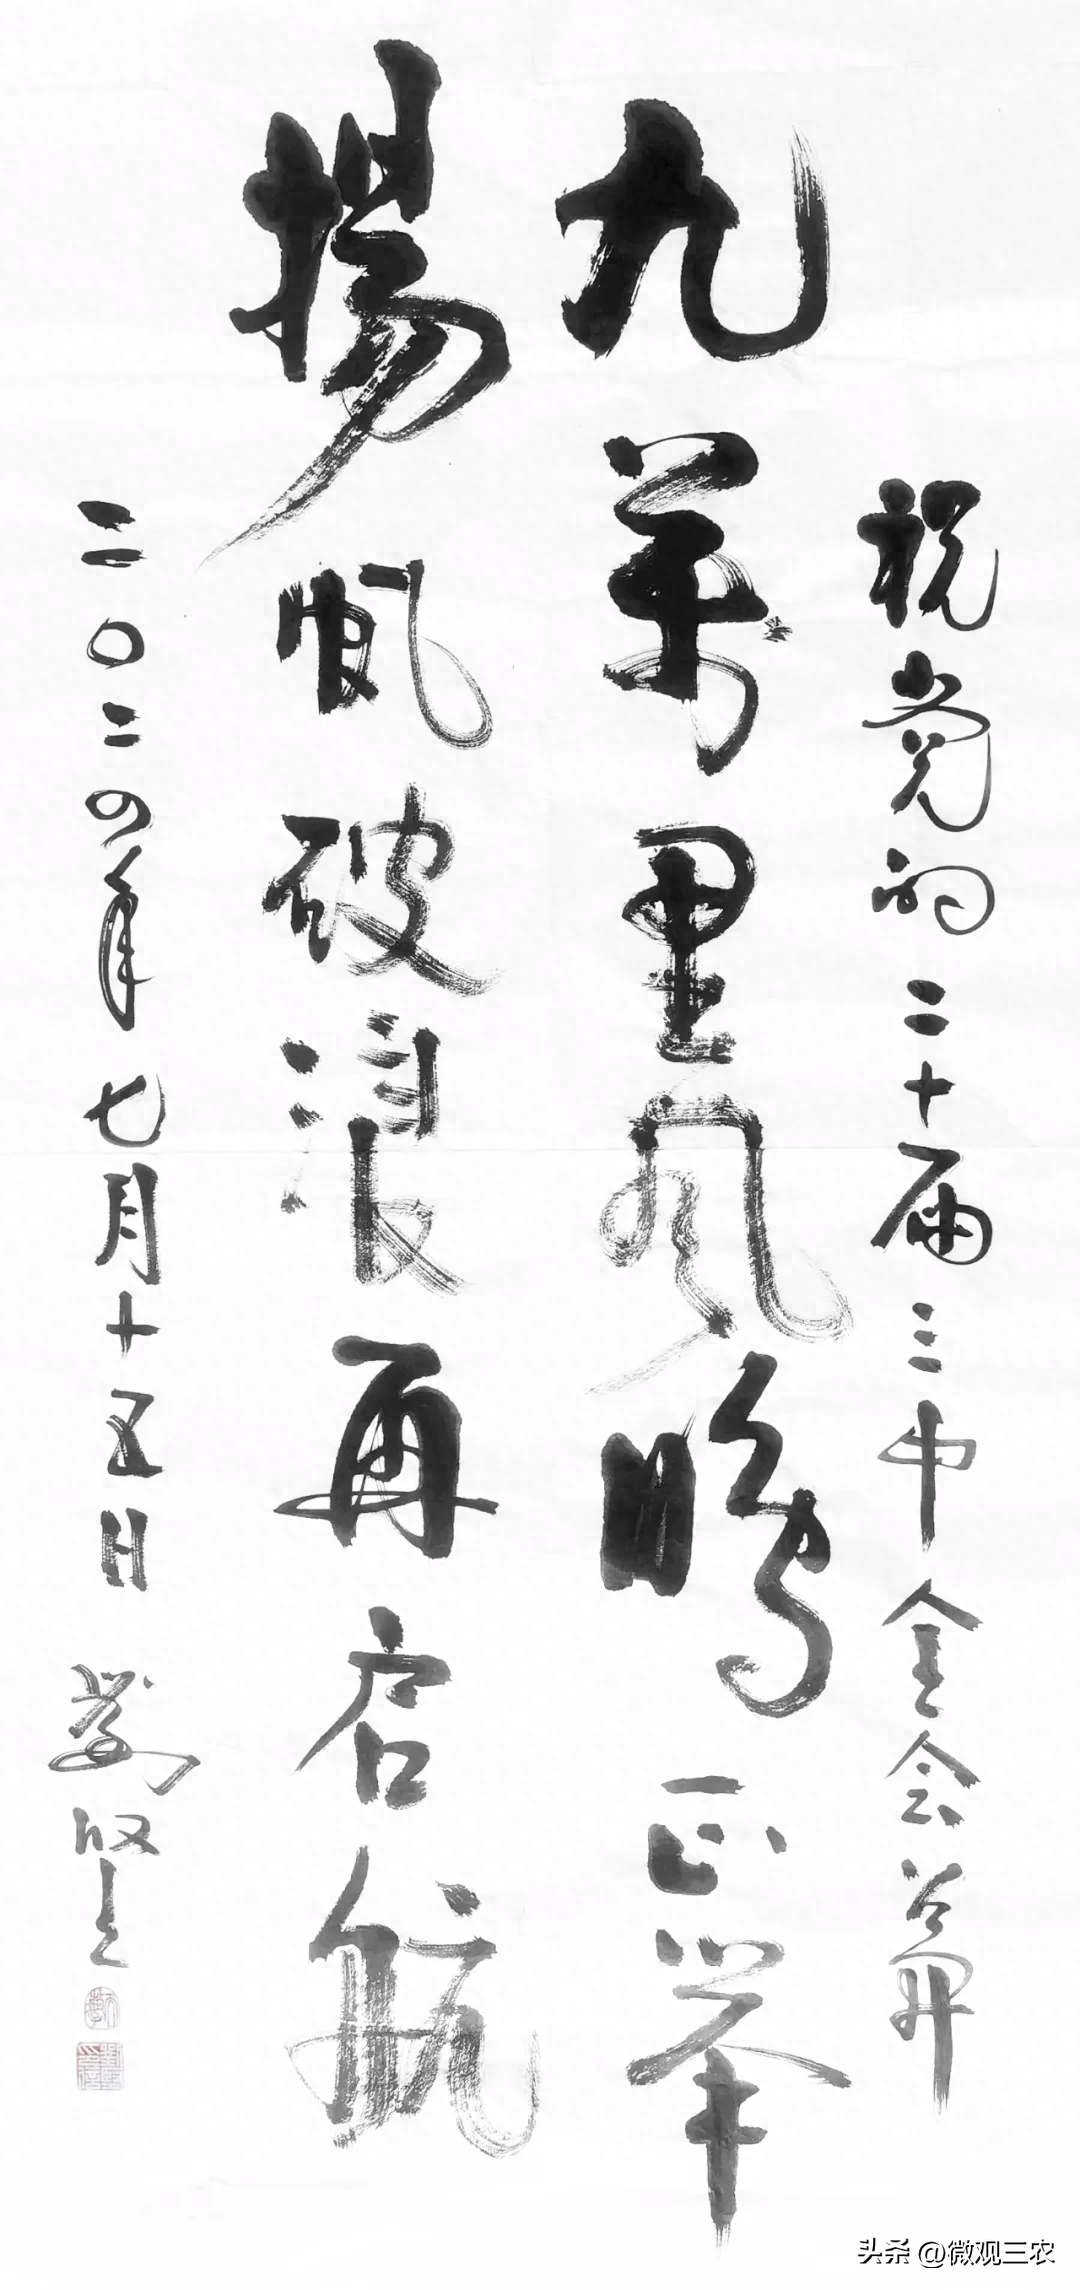 祝党的二十届三中全会召开
九萬里风鹏正举
揚帆破浪再启航
二〇二四年七月十五日
头条 @微观三农